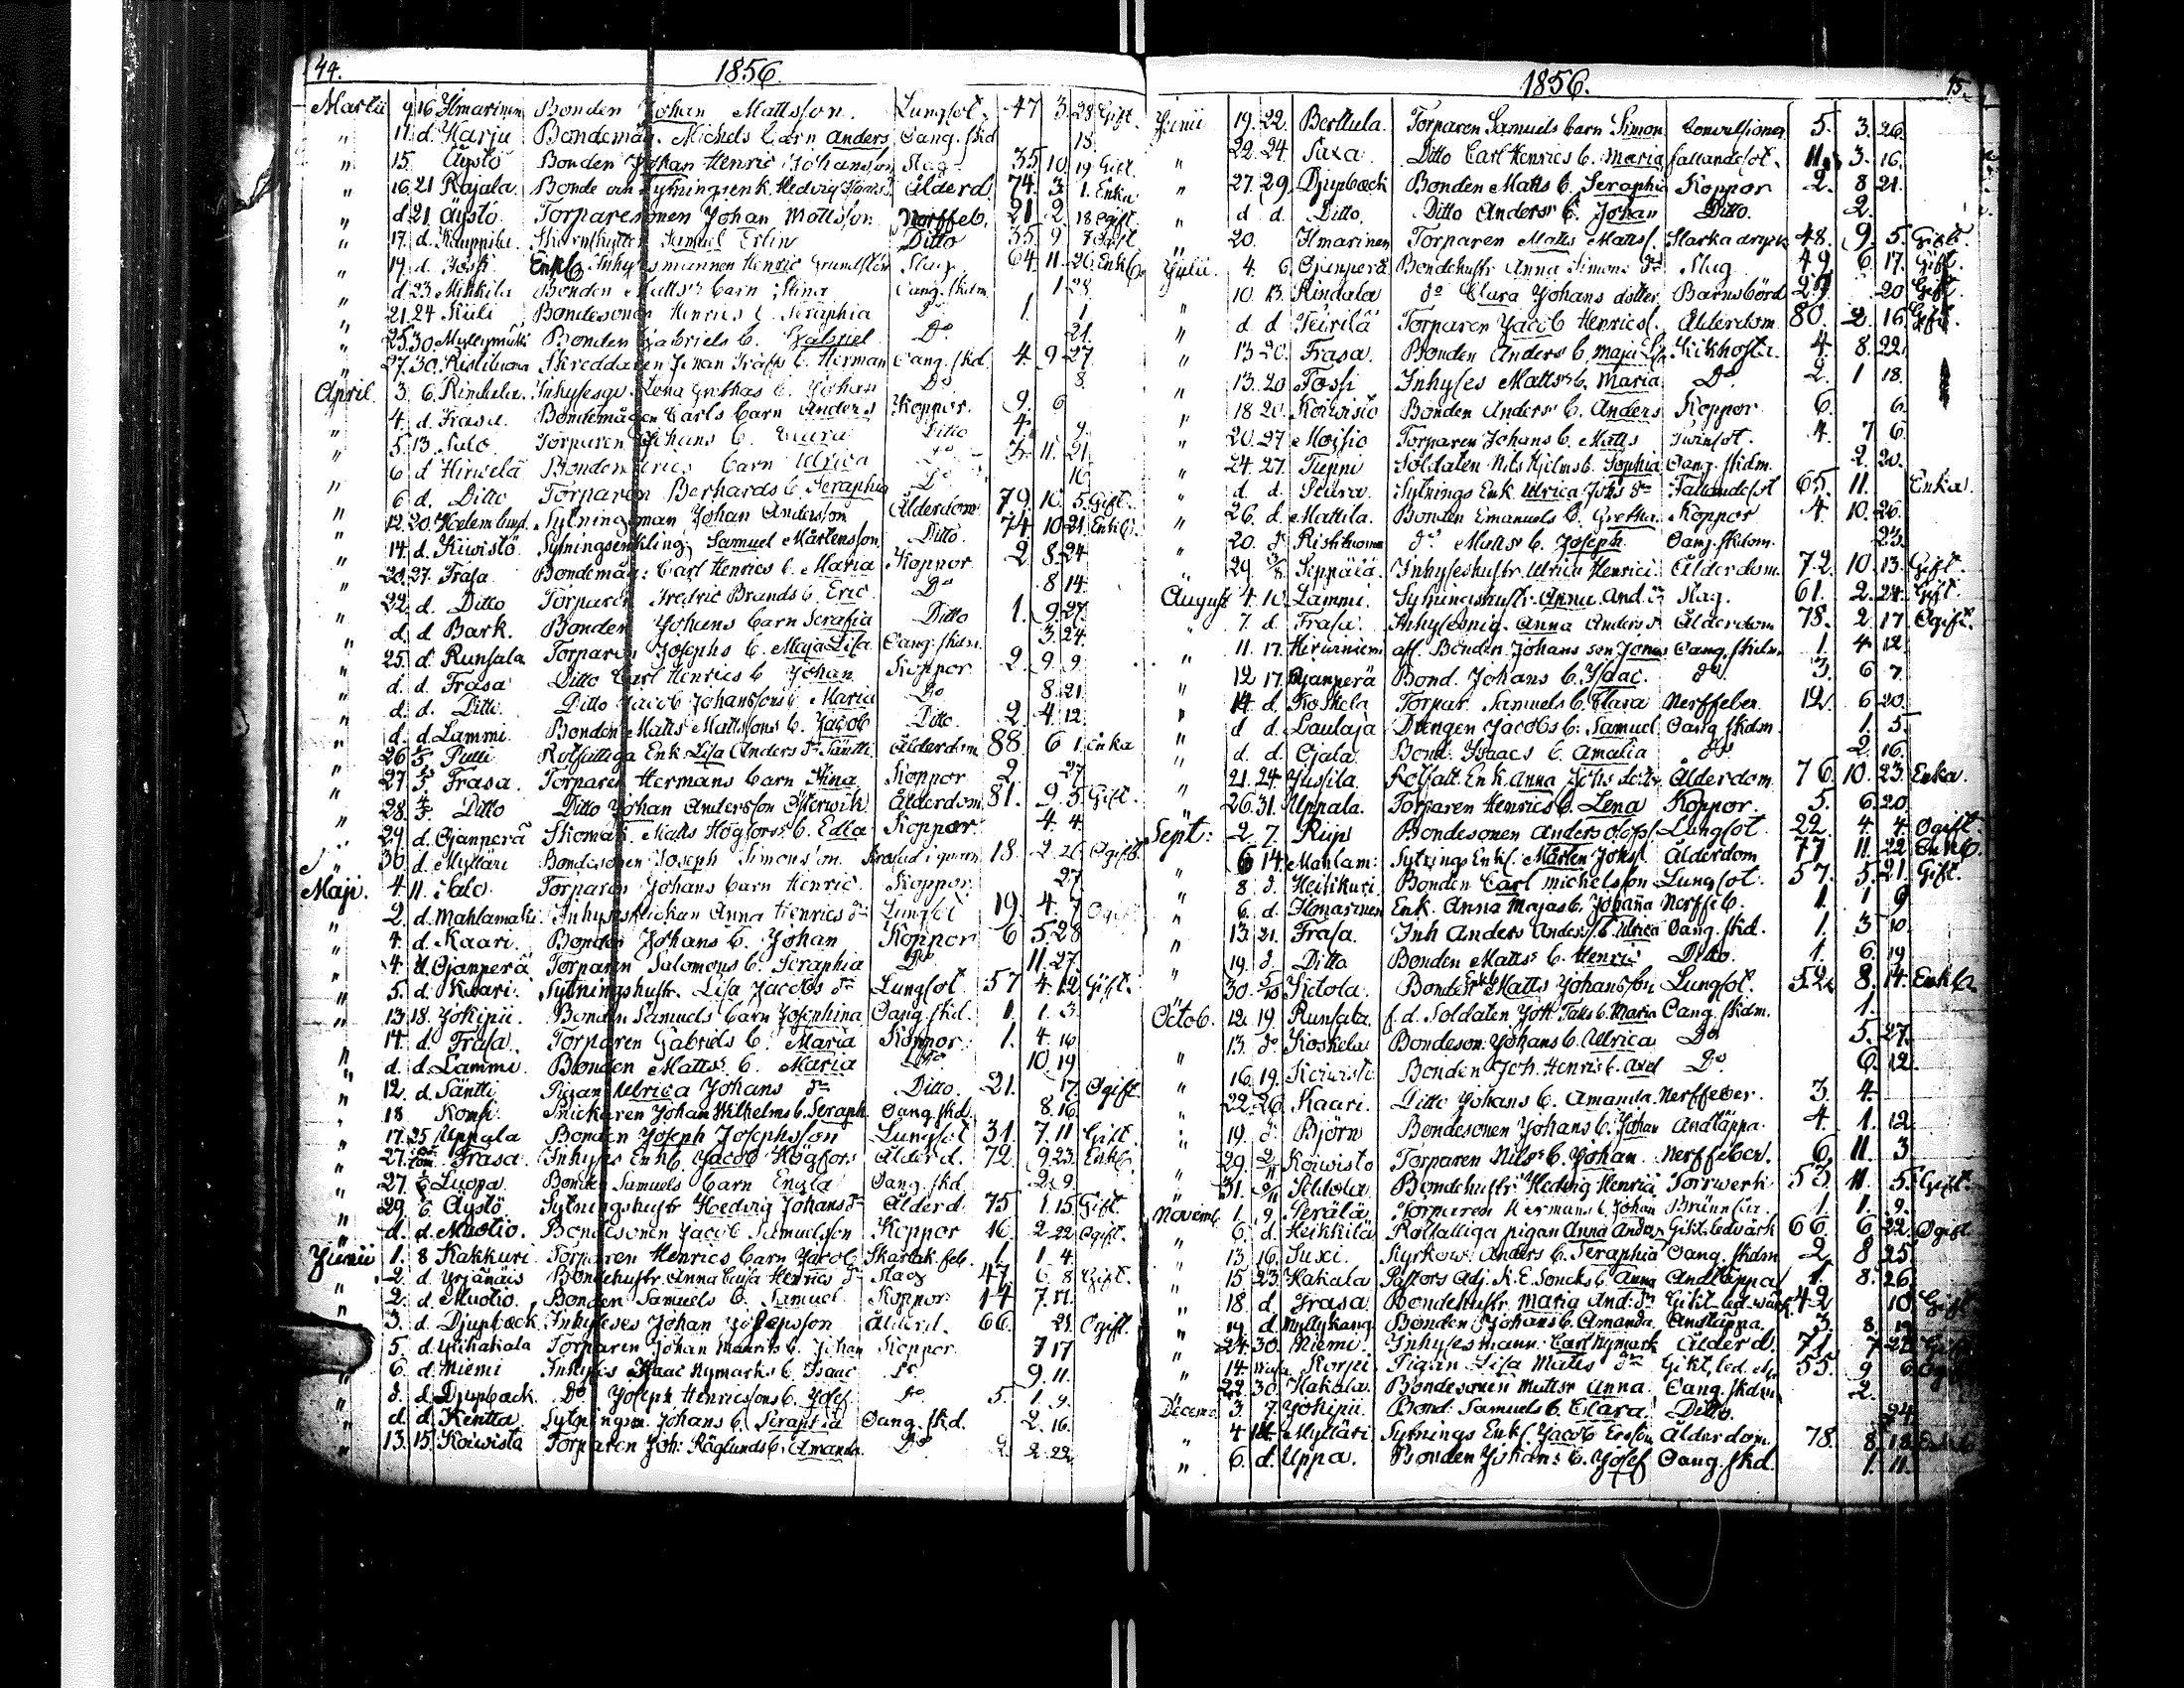 44. 1856.
Martii 9 16 Ilmarinen Bonden Johan Mattsson Lungsot. 47 3. 28 Gift.
" 11 d. Harju Bondemåg. Michels barn Anders Oang. skd 18.
" 15. Äystö Bonden Johan Henric Johansson Slag. 35 10. 19 Gift.
" 16 21 Rajala. Bonde och Sytningsenk. Hedvig Ålderd. 74. 3. 1. Enka
" d 21. Äystö. Torparesonen Johan Mattsson Nerffeb. 21 2. 18 Ogift.
" 17. d. Kauppila Samuel Erlin Ditto 35. 9 Gift
" 19. d. Enkl. Inhysesmannen Henric Grundsten Slag 64. 11. 26 Enkl.
" d 23. Mikkila Bonden Matts barn Stina Oang. skdm. 1 28
" 21 24 Kuli Bondesonen Henrics b. Seraphia Do 1. 1.
" 25 30 Myllymäki Bonden Gabriels b. Gabriel Do 21.
" 27. 30. Ristiluoma Skreddaren b. Herman Oang. skd. 4. 9 27.
April. 3. 6. Rindala. Inhysesqv. Lena Grethas b. Johan Do 8.
" 4. d. Frasa. Bondemågen Carls barn Anders Koppor. 9 6
" 5. 13. Salo Torparen Johans b. Clara Ditto 4.
" 6 d Hirvelä Bonden Erics barn Ulrica Do 3. 11. 21
" 6 d. Ditto Torparen Berhards b. Seraphia Do 16
" 12. 20. Sytningsman Johan Andersson Ålderdom 79. 10. 5. Gift.
" 14. d. Kiwistö Sytningsenkling Samuel Mårtensson. Ditto. 74. 10 21. Enkl.
" 20. 27. Frasa Bondemåg: Carl Henrics b. Maria Koppor 2 8. 24.
" 22. d. Ditto Torparen Fredric Brands b. Eric. Do 8 14.
" d. d Bark. Bonden Johans barn Serafia Ditto 1. 9. 27.
" 25. d. Runsala Torparen Josephs b. Maja Lisa Oang. skdm. 3. 24.
" d. d. Frasa Ditto Carl Henrics b. Johan Koppor 2. 9. 9.
" d. d. Ditto. Ditto Jacob Johanssons b. Maria Do 8. 21
" d. d. Lammi. Bonden Matts Mattssons b. Jacob Ditto. 2. 4. 12.
" 26 Rotfattiga Enk. Lisa Anders dr Säntti Ålderdom 88. 6 1. Enka
" 27. Frasa. Torparen Hermans barn Stina Koppor 2. 27.
" 28. Ditto Ditto Johan Andersson Österwik Ålderdom 81. 9. 5. Gift.
" 29. d. Ojanperä Skomak. Matts Högfors b. Edla Koppor. 4. 4.
" 30. d Mylläri Bondesonen Joseph Simonsson 18. 2. 26. Ogift.
Maji. 4. 11. Salo. Torparen Johans barn Henric. Koppor. 27
" 2. d. Mahlamäki. Inhysesflickan Anna Henrics dr Lungsot 19. 4. 7
" 4. d. Kaari. Bonden Johans b. Johan Koppor 6 5. 28
" 4. d Ojanperä Torparen Salomons b. Seraphia Do 11. 27.
" 5. d. Kaari. Sytningshustr. Lisa Jacobs dr Lungsot 57 4. 12. Gift.
" 13 18. Jokipii. Bonden Samuels barn Josephina Oang. skd. 1. 1. 3.
" 14. d. Frasa. Torparen Gabriels b. Maria Koppor. 1. 4. 16
" d. d. Lammi. Bonden Matts b. Maria Do 10. 19
" 12. d. Säntti Pigan Ulrica Johans dr Ditto. 21. 17. Ogift.
" 18 Snickaren Johan Wilhelms b. Seraph. Oang. skd. 8. 16
" 17. 25 Uppala Bonden Joseph Josephsson Lungsot 31. 7. 11 Gift.
" 27. Frasa. Inhyses Enkl. Jacob Högfors Ålderd. 72. 9 23. Enkl.
" 27. Luopa. Bonden Samuels barn Engla Oang. skd. 2. 9.
" 29. 6. Äystö. Sytningshustr Hedvig Johans dr Ålderd. 75 1. 15 Gift.
" d. d Muotio. Bondesonen Jacob Samuelsson Koppor 16. 2. 22 Ogift.
Junii 1. 8 Kakkuri Torparen Henrics barn Jacob Skarlak. feb. 1. 1 4.
" 2. d. Yrjänäis Bondehustr. Anna Caisa Henrics dr Slag 47 6 8 Gift.
" 2. d. Muotio. Bonden Samuels b. Samuel Koppor 14 7. 11.
" 3. d. Djupbäck. Inhyses Johan Josepsson Ålderd. 66. 21. Ogift.
" 5. d. Ylihakala Torparen Johan Maurits b. Johan Koppor. 7 17
" 6. d. Niemi Inhyses Isaac Nymarks b. Isaac Do 9. 11.
" d. d Djupback. Do Joseph Henricssons b. Josef. Do 5. 1. 9.
" d. d. Kentta Sytningsm. Johans b. Seraphia Oang. skd. 2. 16.
" 13. 15. Koiwista Torparen Joh: Räglunds b. Amanda. Do 2. 22
1856. 45.
Junii 19. 22. Berttula. Torparen Samuels barn Simon Convultioner 5. 3. 26.
" 22. 24. Saxa. Ditto Carl Henrics b. Maria Fallandesot. 11. 3. 16.
" 27. 29. Djupbäck Bonden Matts b. Seraphia Koppor 2. 8 21.
" d d. Ditto. Ditto Anders b. Johan Ditto. 2.
" 20. Ilmarinen Torparen Matts Matts. Starka dryck. 48. 9. 5. Gift.
Julii. 4. 6. Ojanperä Bondehustr Anna Simons dr Slag 49 6 17. Gift.
" 10. 13. Rindala do Clara Johans dotter Barnsbörd 27 20 Gift.
" d. d Teirilä Torparen Jacob Henrics. Ålderdom 80. 2 16 Gift.
" 13 20. Frasa. Bonden Anders b. Maja Kikhosta. 4. 8. 22.
" 13. 20 Inhyses Matts b. Maria Do 2. 1 18.
" 18 20. Koiwisto Bonden Anders b. Anders Koppor 6. 6.
" 20. 27 Moisio Torparen Johans b. Matts Twinsot. 4. 7 6.
" 24. 27. Soldaten Nils Hjelms b. Sophia Oang. skdm. 2. 20.
" d. d. Peura. Sytnings Enk. Ulrica Johs dr Fallandesot 65. 11. Enka.
" 26. d. Mattila. Bonden Emanuels b. Gretha Koppor 4. 10. 26.
" 20. d Ristiluoma do Matts b. Joseph. Oang. skdom. 23.
" 29. Seppälä. Inhyseshustr. Ulrica Henrics Ålderdom. 72. 10. 13. Gift.
August 4. 10. Lammi. Sytningshustr. Anna And. dr Slag. 61. 2. 24. Gift.
" 7. d. Frasa. Inhysespig. Anna Anders dr Ålderdom 78. 2. 17 Ogift.
" 11. 17. Hirwiniemi afl. Bonden Johans son Jonas Oang. skdm. 1. 4. 12.
" 12 17. Ojanperä Bond. Johans b. Isaac. do 3. 6 7.
" 14. d. Koskela Torpar. Samuels b. Clara Nerffeber. 12. 6 20.
" d d. Laulaja Drengen Jacobs b. Samuel Oang skdm. 1. 5.
" d. d. Ojala. Bond. Isaacs b. Amalia do 2. 16.
" 21. 24. Jussila. Rotfatt. Enk. Anna Johs dotter Ålderdom. 76. 10. 23. Enka.
" 26. 31. Uppala. Torparen Henrics b. Lena Koppor. 5. 6. 20
Sept: 2. 7. Riip Bondesonen Anders Olofss. Lungsot. 22. 4. 4. Ogift.
" 6 14. Mahlam: Sytnings Enkl. Mårten Johss. Ålderdom 77 11. 22 Enkl.
" 8 d. Heikkuri Bonden Carl Michelsson Lungsot. 57. 5. 21. Gift.
" 6. d. Ilmarinen Enk. Anna Majas b. Johanna Nerffeb. 1. 1 9
" 13. 21. Frasa. Inh Anders Anderss. b. Ulrica Oang. skd. 1. 3 10.
" 19. d. Ditto Bonden Matts b. Henric Ditto. 1. 6. 19
" 30. Ketola. Bonden Enkl. Matts Johansson Lungsot. 52. 8. 14. Enkl.
Octob. 12. 19. Runsala. f. d. Soldaten b. Maria Oang. skdm. 1.
" 13. d. Koskela Bondeson. Johans b. Ulrica Do 5. 27.
" 16 19. Koiwisto Bonden Joh. Henris b. Axel Do 6. 12.
" 22. 26. Kaari. Ditto Johans b. Amanda Nerffeber. 3. 4.
" 19. d. Björn Bondesonen Johans b. Johan Andtäppa. 4. 1. 12.
" 29. Koiwisto Torparen Nils b. Johan. Nerffeber. 6. 11. 3
" 31. Bondehustr. Hedvig Henric Torrwerk 53. 11. 5. Gift.
Novemb. 1. 9. Perälä. Torparen Hermans b. Johan 1. 1. 9.
" 6. d. Heikkilä Rotfattiga pigan Anna Anders Gikt. ledwärk 66. 6 22. Ogift
" 13. 16. Luxi. Kyrkow. Anders b. Seraphia Oang. skdm 2 8 25
" 15. 23. Hakala Pastors Adj. K. E. Soncks b. Anna Andtäppa 1. 8. 26
" 18. d Frasa Bondehustr Maria And. dr Gikt led. wärk 42 10 Gift
" 19 d. Myllykang. Bonden Johans b. Amanda. Andtäppa. 3. 8.
" 24. 30. Niemi Inhysesmann. Carl Nymark Ålderd. 71. 7 28
" 14. Korpi Pigan Lisa Matts dr Gikt, led. 55. 9 6
" 22. 30. Hakola. Bondesonen Matts Anna. Oang. skdm 2.
Decemb. 3. 7. Jokipii. Bond. Samuels b. Clara. Ditto. 24
" 4 14. Mylläri Sytnings Enkl. Jacob Ersson Ålderdom. 78. 8. 18. Enkl.
" 6. d. Uppa. Bonden Johans b. Josef Oang. skd. 1. 11.